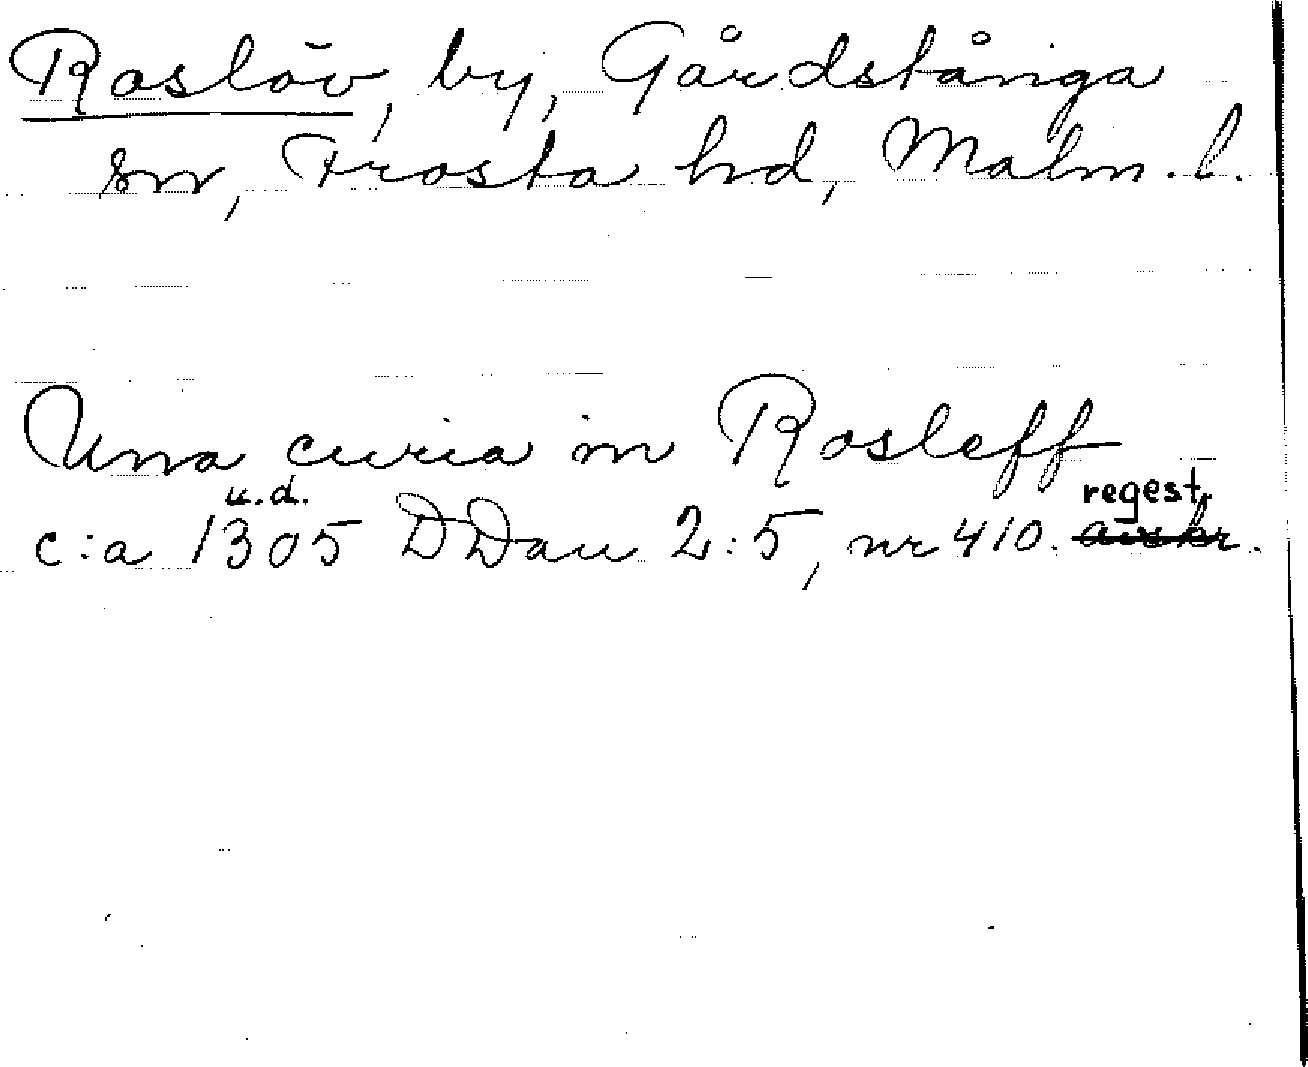 Roslöv, by, Gårdstånga
sn, Frosta hd, Malm. l.
Una curia in Rosleff
u.d. regestr
c:a 1305 DDan 2:5, nr 410. avskr.